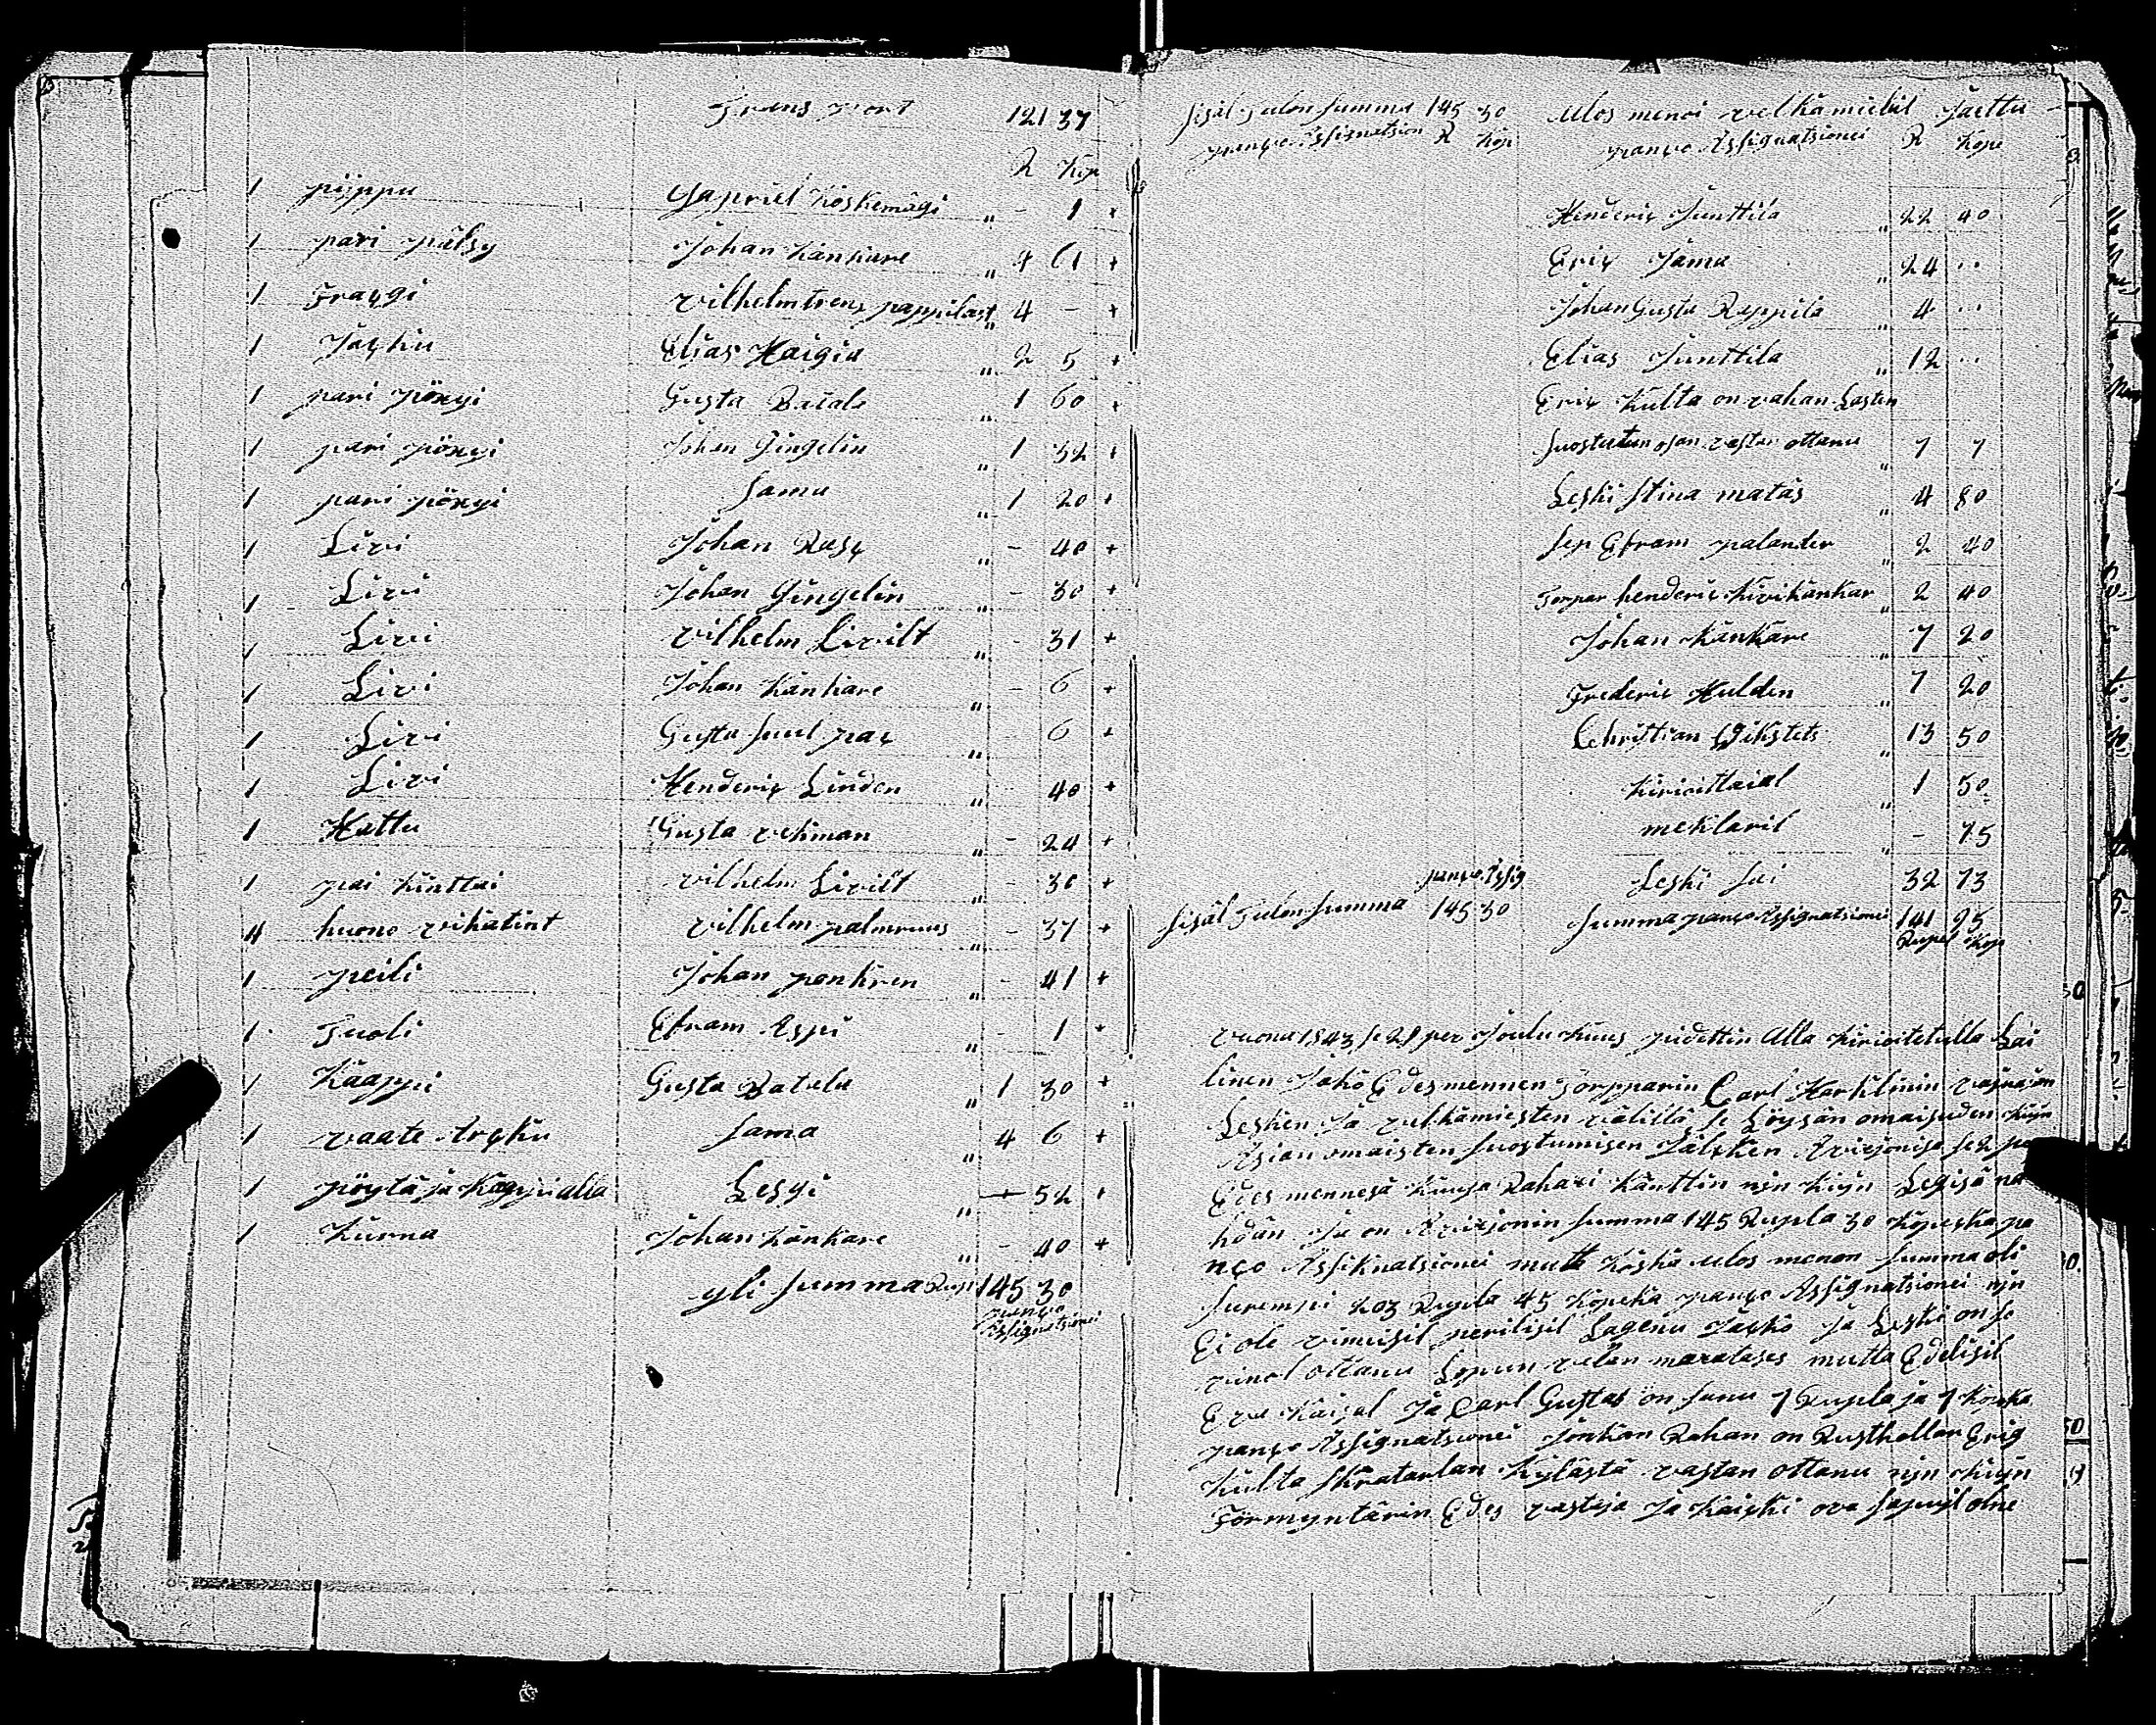 Trans port 121 37
R Kop
1 piippu Gapriel Koskemägi " - 1 +
1 pari pälsy Johan Kankare " 4 61 +
1 Fraçgi Vilhelm trenç pappilast " 4 - +
1 Jaçku Elias Haigia " 2 5 +
1 pari pöxyi Gusta Ratala " 1 60 +
1 pari pöxyi Johan Gingelin " 1 32 +
1 pari pöxyi Sama " 1 20 +
1 Livi Johan Rasç " - 40 +
1 Livi Johan Gingelin " - 30 +
1 Livi Vilhelm Livilt " - 31 +
1 Livi Johan Kankare " - 6 +
1 Livi Gusta Suul paç " - 6 +
1 Livi Henderiç Linden " - 40 +
1 Hattu Gusta vehman " - 24 +
1 pai Kinttai Vilhelm Livilt " - 30 +
4 huono vikatint Vilhelm palmruus " - 37 +
1 peili Johan penkren " - 41 +
1 Tuoli Efram Aspi " - 1 +
1 Kaappi Gusta Ratala " 1 30 +
1 vaate Arçku Sama " 4 6 +
1 pöytä ja Kappialla Lesgi " - 52 +
1 Kurna Johan Kankare " - 40 +
yli Summa Rupl 145 30
panço
Assignatsionei
Sisäl Tulon Summa 145 30 Ulos menoi velkamiehil Jaettu
panço Assignatsion R Kop panço Assignatsionei R Kope
Henderiç Junttila " 22 40
Eriç Jama " 24 ..
Johan Gusta Rappila " 4 ..
Elias Junttila " 12 ..
Eriç Kulta on vahan Lasten
Suostutun osan vastan ottanu " 7 7
Leski Stina matas " 4 80
Sep Efram palander " 2 40
Torpar henderiç Kivikankar " 2 40
Johan Kankare " 7 20
Frederiç Hulden " 7 20
Christian Wikstets " 13 50
Kirioittaial " 1 50
meklaril " - 75
panço Assig Leski Sai 32 73
Sisäl Tulon Summa 145 30 Summa panço Assignatsionei 141 95
Rupel Kop
Vuona 1843 se 21 per Joulu Kuus pidettin Alla Kirioitetulla Lai
linen Jako Edesmennen Torpparin Carl Harklinin
Lesken Ja velkamiesten välillä Se Löysän omaisuden Kuin
Asian omaisten Suostumisen Jälçken Se 2
Edes mennesä Kuusa Rahaxi Känttin nin Kuin Legisä nä
hdän Ja on Summa 145 Rupla 30 Kopeka pa
nço Assiknatsionei mutt Koska ulos menon Summa oli
Surempi 203 Rupla 45 Kopeka panço Assignatsionei nin
Ei ole vimeisil perilisil Lagenu Jaçko Ja Leski on Se
ottanu Lopun velan mutta Edelisil
Eva Kaisal Ja Carl Gustas on Sanu 7 Rupla ja 7 Kopeka
panço Assignatsionei Jonkan Rahan on Rusthollar Erig
Kulta Skratarlan Kylästä vastan ottanu nin Kuin
Förmyntärin Edes vastaja Ja Kaiçki ova olne